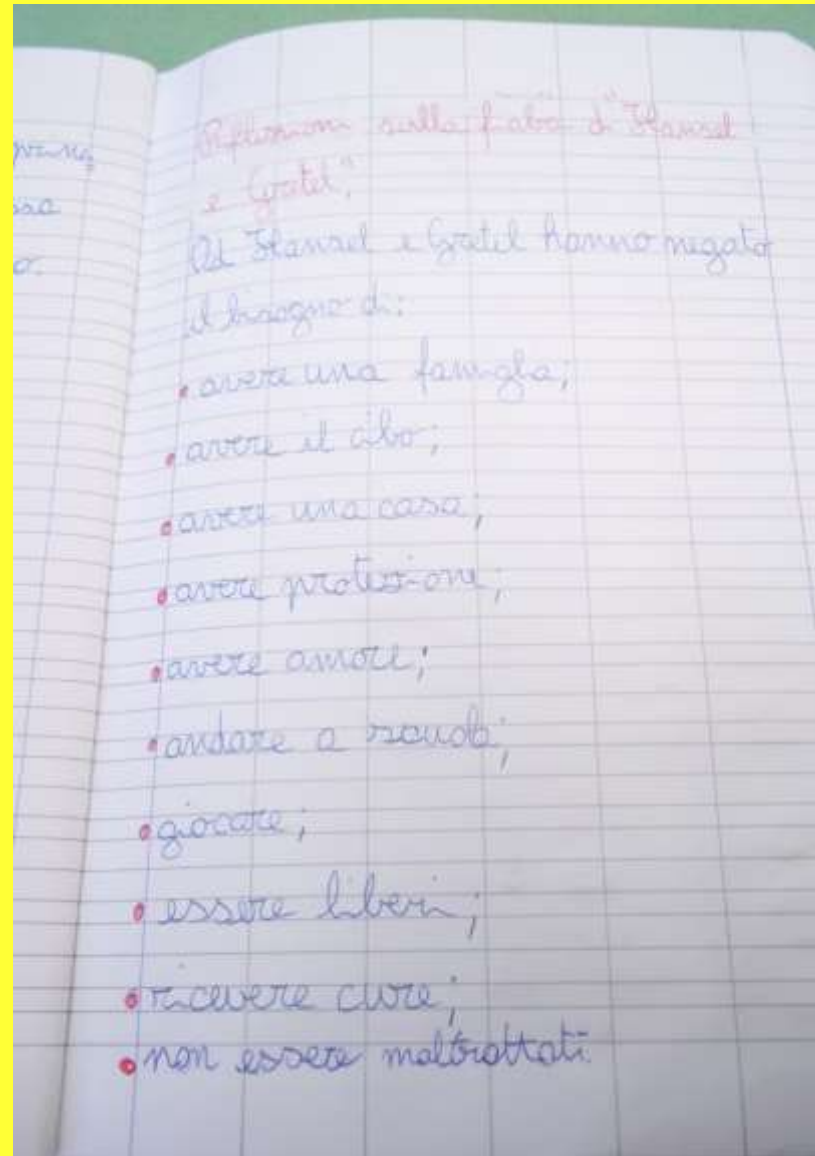 Riflessioni sulla fiaba di "Hansel
e Gretel".
Ad Hansel e Gretel hanno negato
il bisogno di:
avere una famiglia;
avere il cibo;
avere una casa;
avere protezione;
avere amore;
andare a scuola;
giocare;
essere liberi;
ricevere cure;
non essere maltrattati.